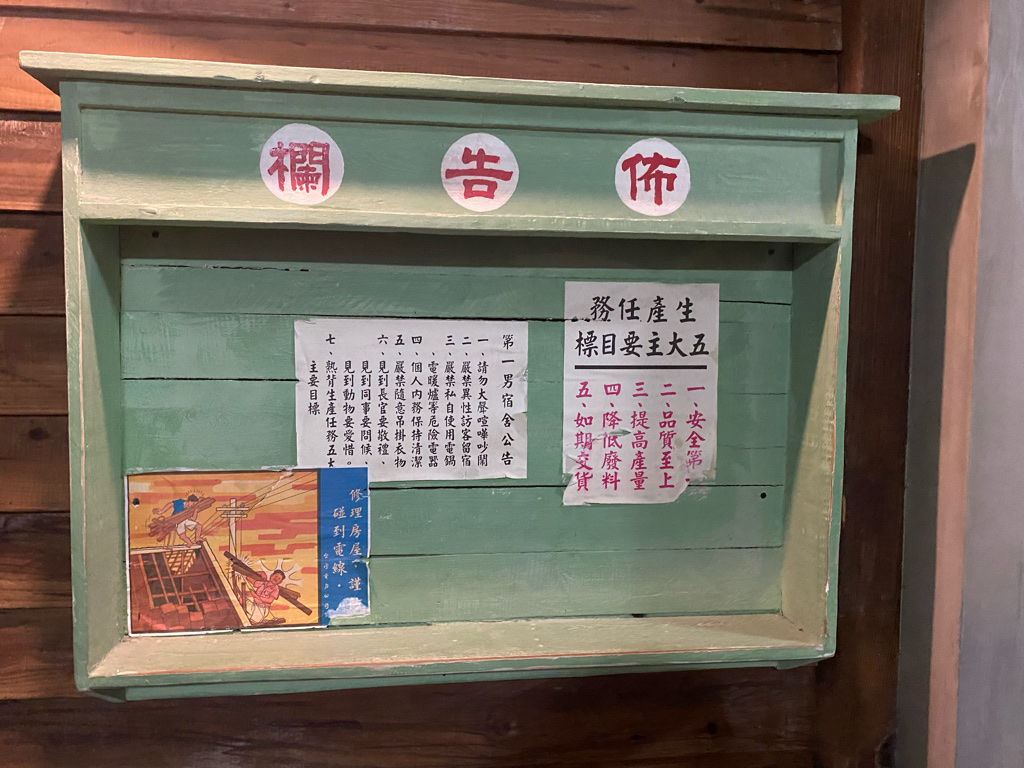 佈告欄
生產任務
五大主要目標
一、安全第一
二、品質至上
三、提高產量
四、降低廢料
五、如期交貨
第一男宿舍公告
一、請勿大聲喧嘩吵鬧
二、嚴禁異性訪客留宿
三、嚴禁私自使用電鍋
、電暖爐等危險電器
四、個人內務保持清潔
五、嚴禁隨意吊掛衣物
六、見到長官要敬禮、
見到同事要問候、
見到動物要愛惜。
七、熟背生產任務五大
主要目標
修理房屋、謹
碰到電線。